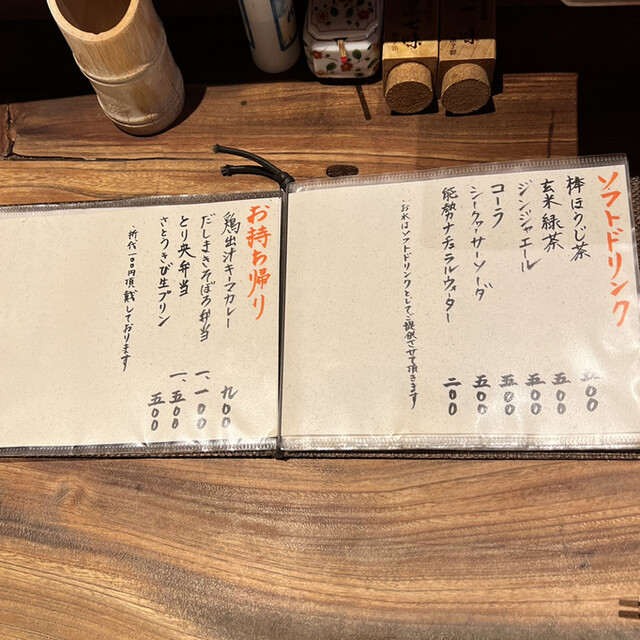 ソフトドリンク
棒ほうじ茶 五〇〇
玄米緑茶 五〇〇
ジンジャエール 五〇〇
コーラ 五〇〇
シークァーサーソーダ 五〇〇
能勢ナチュラルウォーター 二〇〇
お水はソフトドリンクとしてご提供させて頂きます
お持ち帰り
鶏出汁キーマカレー 九〇〇
だしまきそぼろ弁当 一、一〇〇
とり央弁当 一、五〇〇
さとうきび生プリン 五〇〇
折代一〇〇円頂戴しております